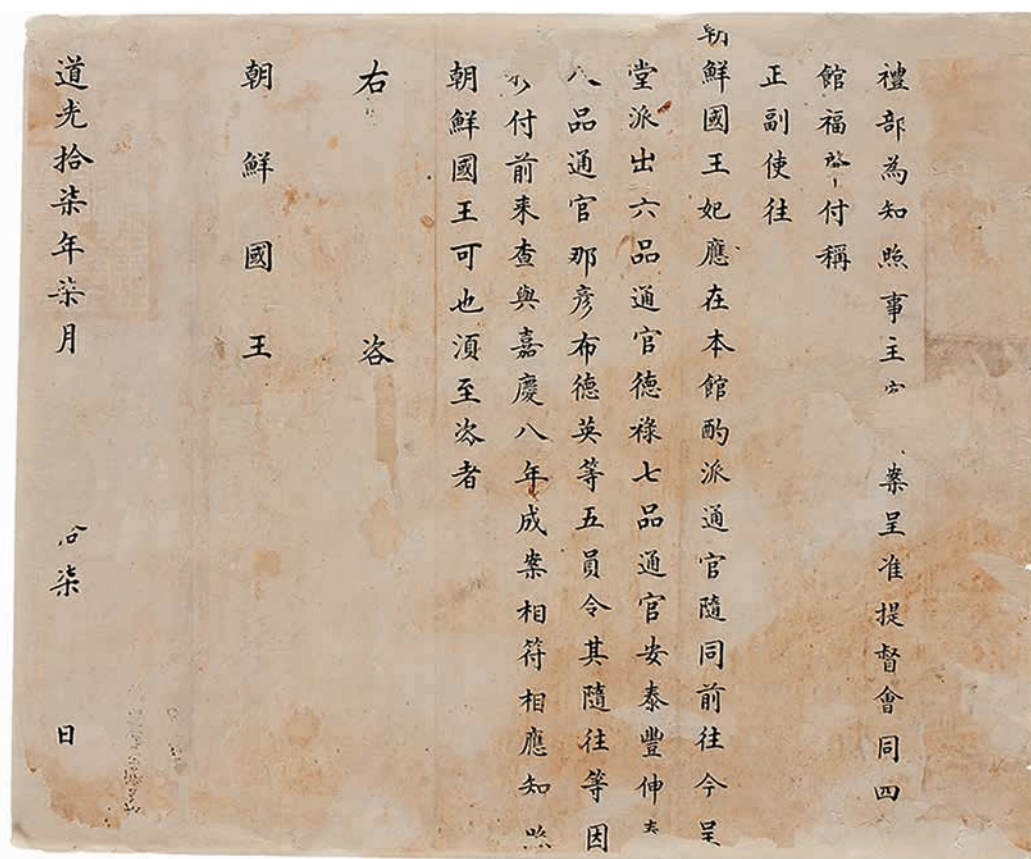 禮部為知照事主 案呈准提督會同四
館福 付稱
正副使往
朝鮮國王妃應在本館酌派通官隨同前往今呈
堂派出六品通官德祿七品通官安泰豐伸
八品通官那彥布德英等五員令其隨往等因
付前来查與嘉慶八年成案相符相應知照
朝鮮國王可也湏至咨者
右咨
朝鮮國王
道光拾柒年柒月 柒 日